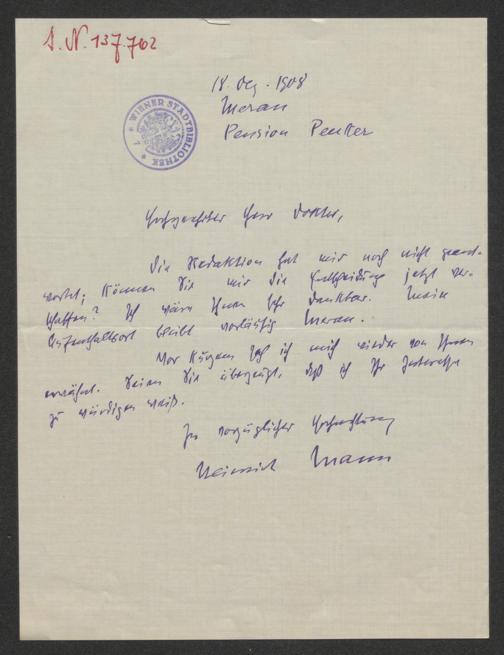 I. N. 137.762
18. Dez. 1908
Meran
Pension Peuker
WIENER STADTBIBLIOTHEK
Hochgeehrter Herr Doktor,
die Redaktion hat mir noch nicht geant-
wortet; können Sie mir die Entscheidung jetzt ver-
schaffen? Ich wäre Ihnen sehr dankbar. Mein
Aufenthaltsort bleibt vorläufig Meran.
Vor Kurzem sah ich mich wieder von Ihnen
erwähnt. Seien Sie überzeugt, daß ich Ihr Interesse
zu würdigen weiß.
In vorzüglicher Hochachtung
Heinrich Mann